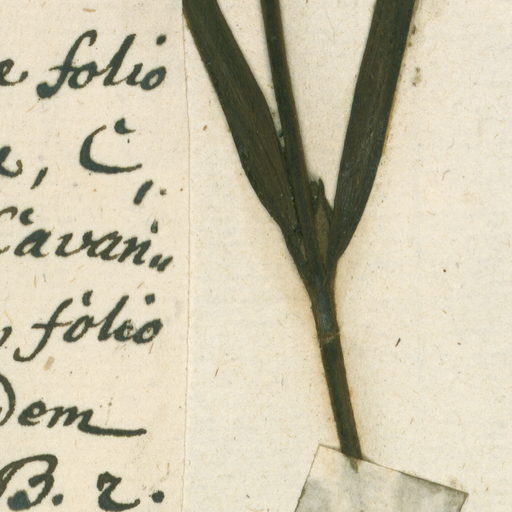 folio
C,
Cavan„
folio
dem
B. 2.